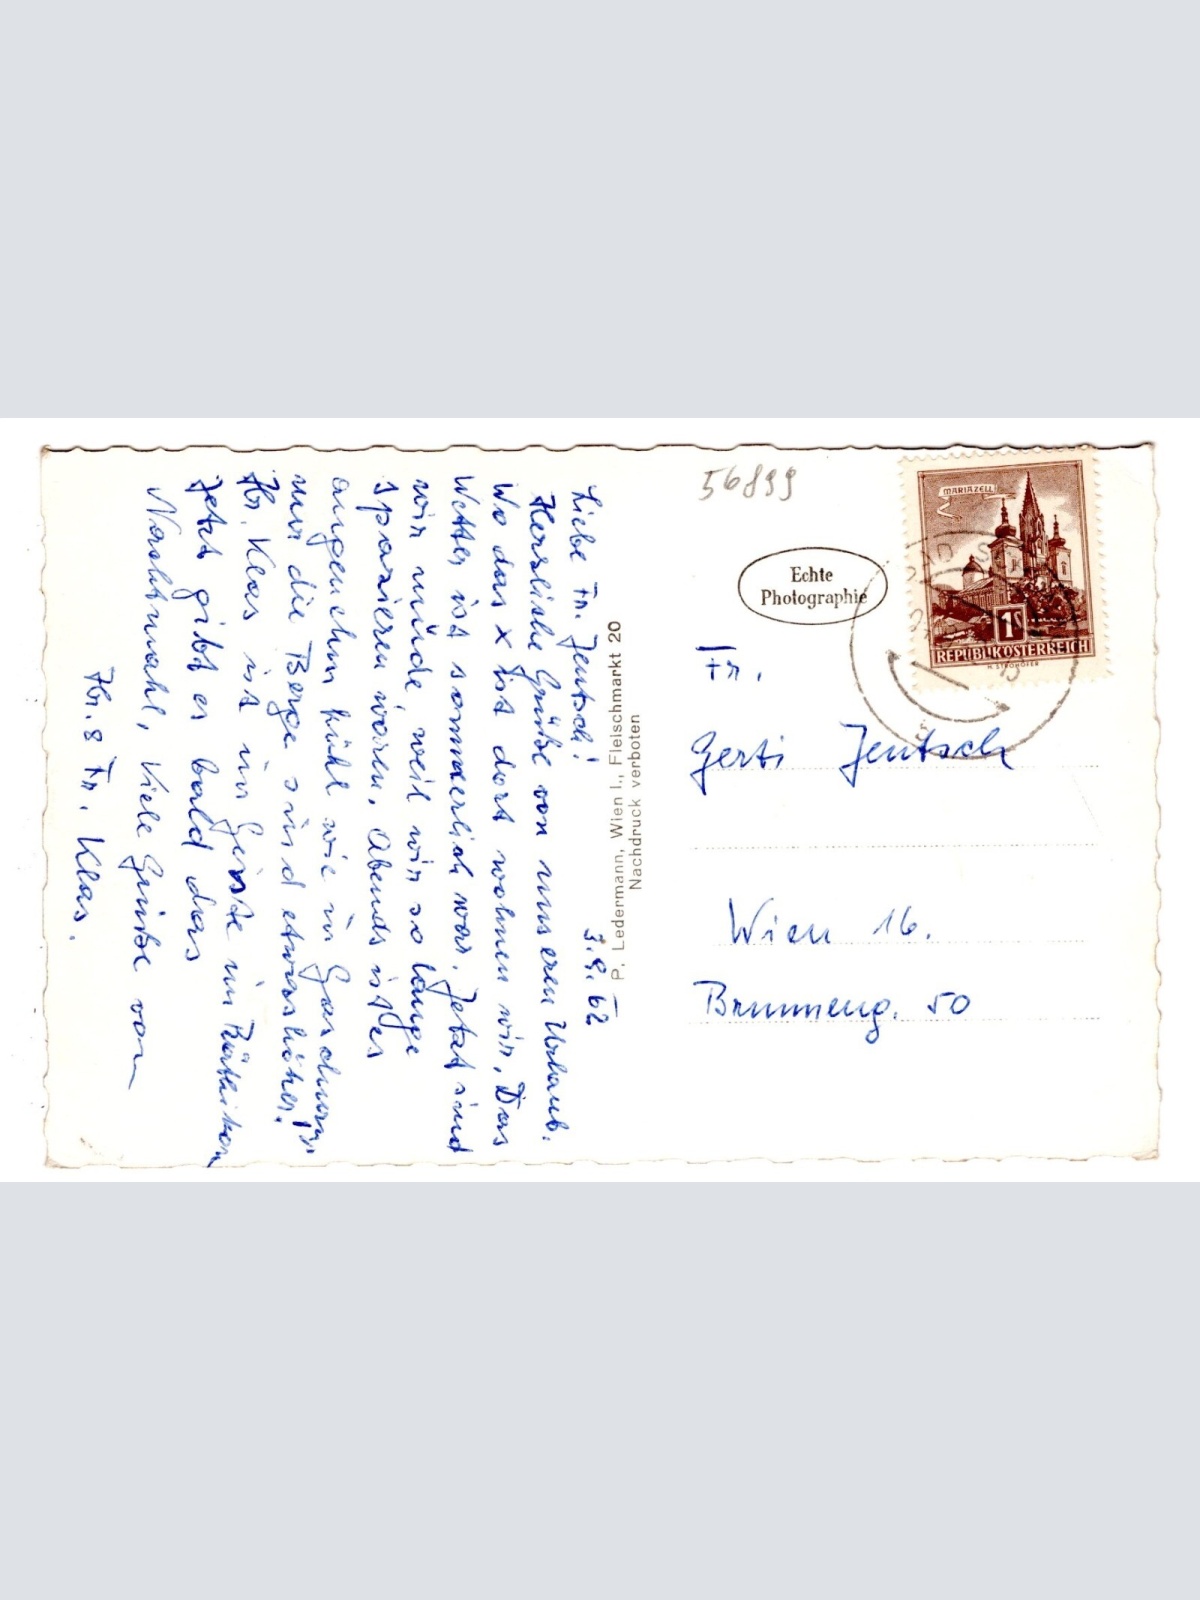 Liebe Fr. Jentsch!
3.9.62
Herzliche Grüße von unseren Urlaub.
Wo das x ist dort wohnen wir. Das
Wetter ist sommerlich war. Jetzt sind
wir müde, weil wir so lange
spazieren waren. Abends ist es
angenehm kühl wie in Gaschurn
nur die Berge sind etwas höher!
Hr. Klas ist im Geiste im Rätikon
Jetzt gibt es bald das
Nachtmahl, Viele Grüße von
Hr. & Fr. Klas.
P. Ledermann, Wien I., Fleischmarkt 20
Nachdruck verboten
56899
Echte
Photographie
MARIAZELL
1S
REPUBLIK ÖSTERREICH
H. STROHOFER
Fr.
Gerti Jentsch
Wien 16.
Brunneng. 50